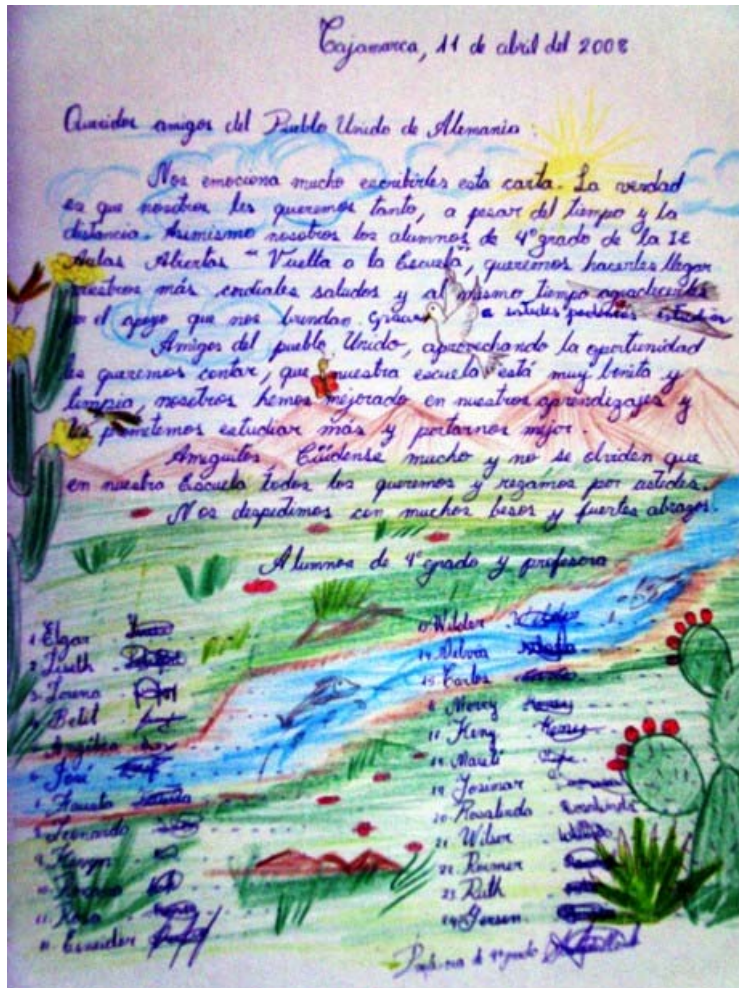 Cajamarca, 11 de abril del 2008
Queridos amigos del Pueblo Unido de Alemania :
Nos emociona mucho escribirles esta carta. La verdad
es que nosotros les queremos tanto, a pesar del tiempo y la
distancia. Asimismo nosotros los alumnos de 4° grado de la IE
Aulas Abiertas "Vuelta a la Escuela", queremos hacerles llegar
nuestros más cordiales saludos y al mismo tiempo agradecerles
por el apoyo que nos brindan. Gracias a ustedes podemos estudiar
Amigos del pueblo Unido, aprovechando la oportunidad
les queremos contar, que nuestra escuela está muy bonita y
limpia, nosotros hemos mejorado en nuestros aprendizajes y
les prometemos estudiar más y portarnos mejor.
Amiguitos Cuídense mucho y no se olviden que
en nuestra Escuela todos los queremos y rezamos por ustedes.
Nos despedimos con muchos besos y fuertes abrazos.
Alumnos de 4° grado y profesora
1. Elgar
2. Liseth
3. Lorena
4. Betil
5. Angélica
6. José
7. Fausto
8. Leonardo
9.
10.
11. Rosa
12.
13. Wilder
14.
15. Carlos
Mercy
Keny
19. Josimar
20. Rosalinda Rosalinda
21. Wilser
22. Roimer
23. Ruth
24. Gerson
Profesora de 4° grado